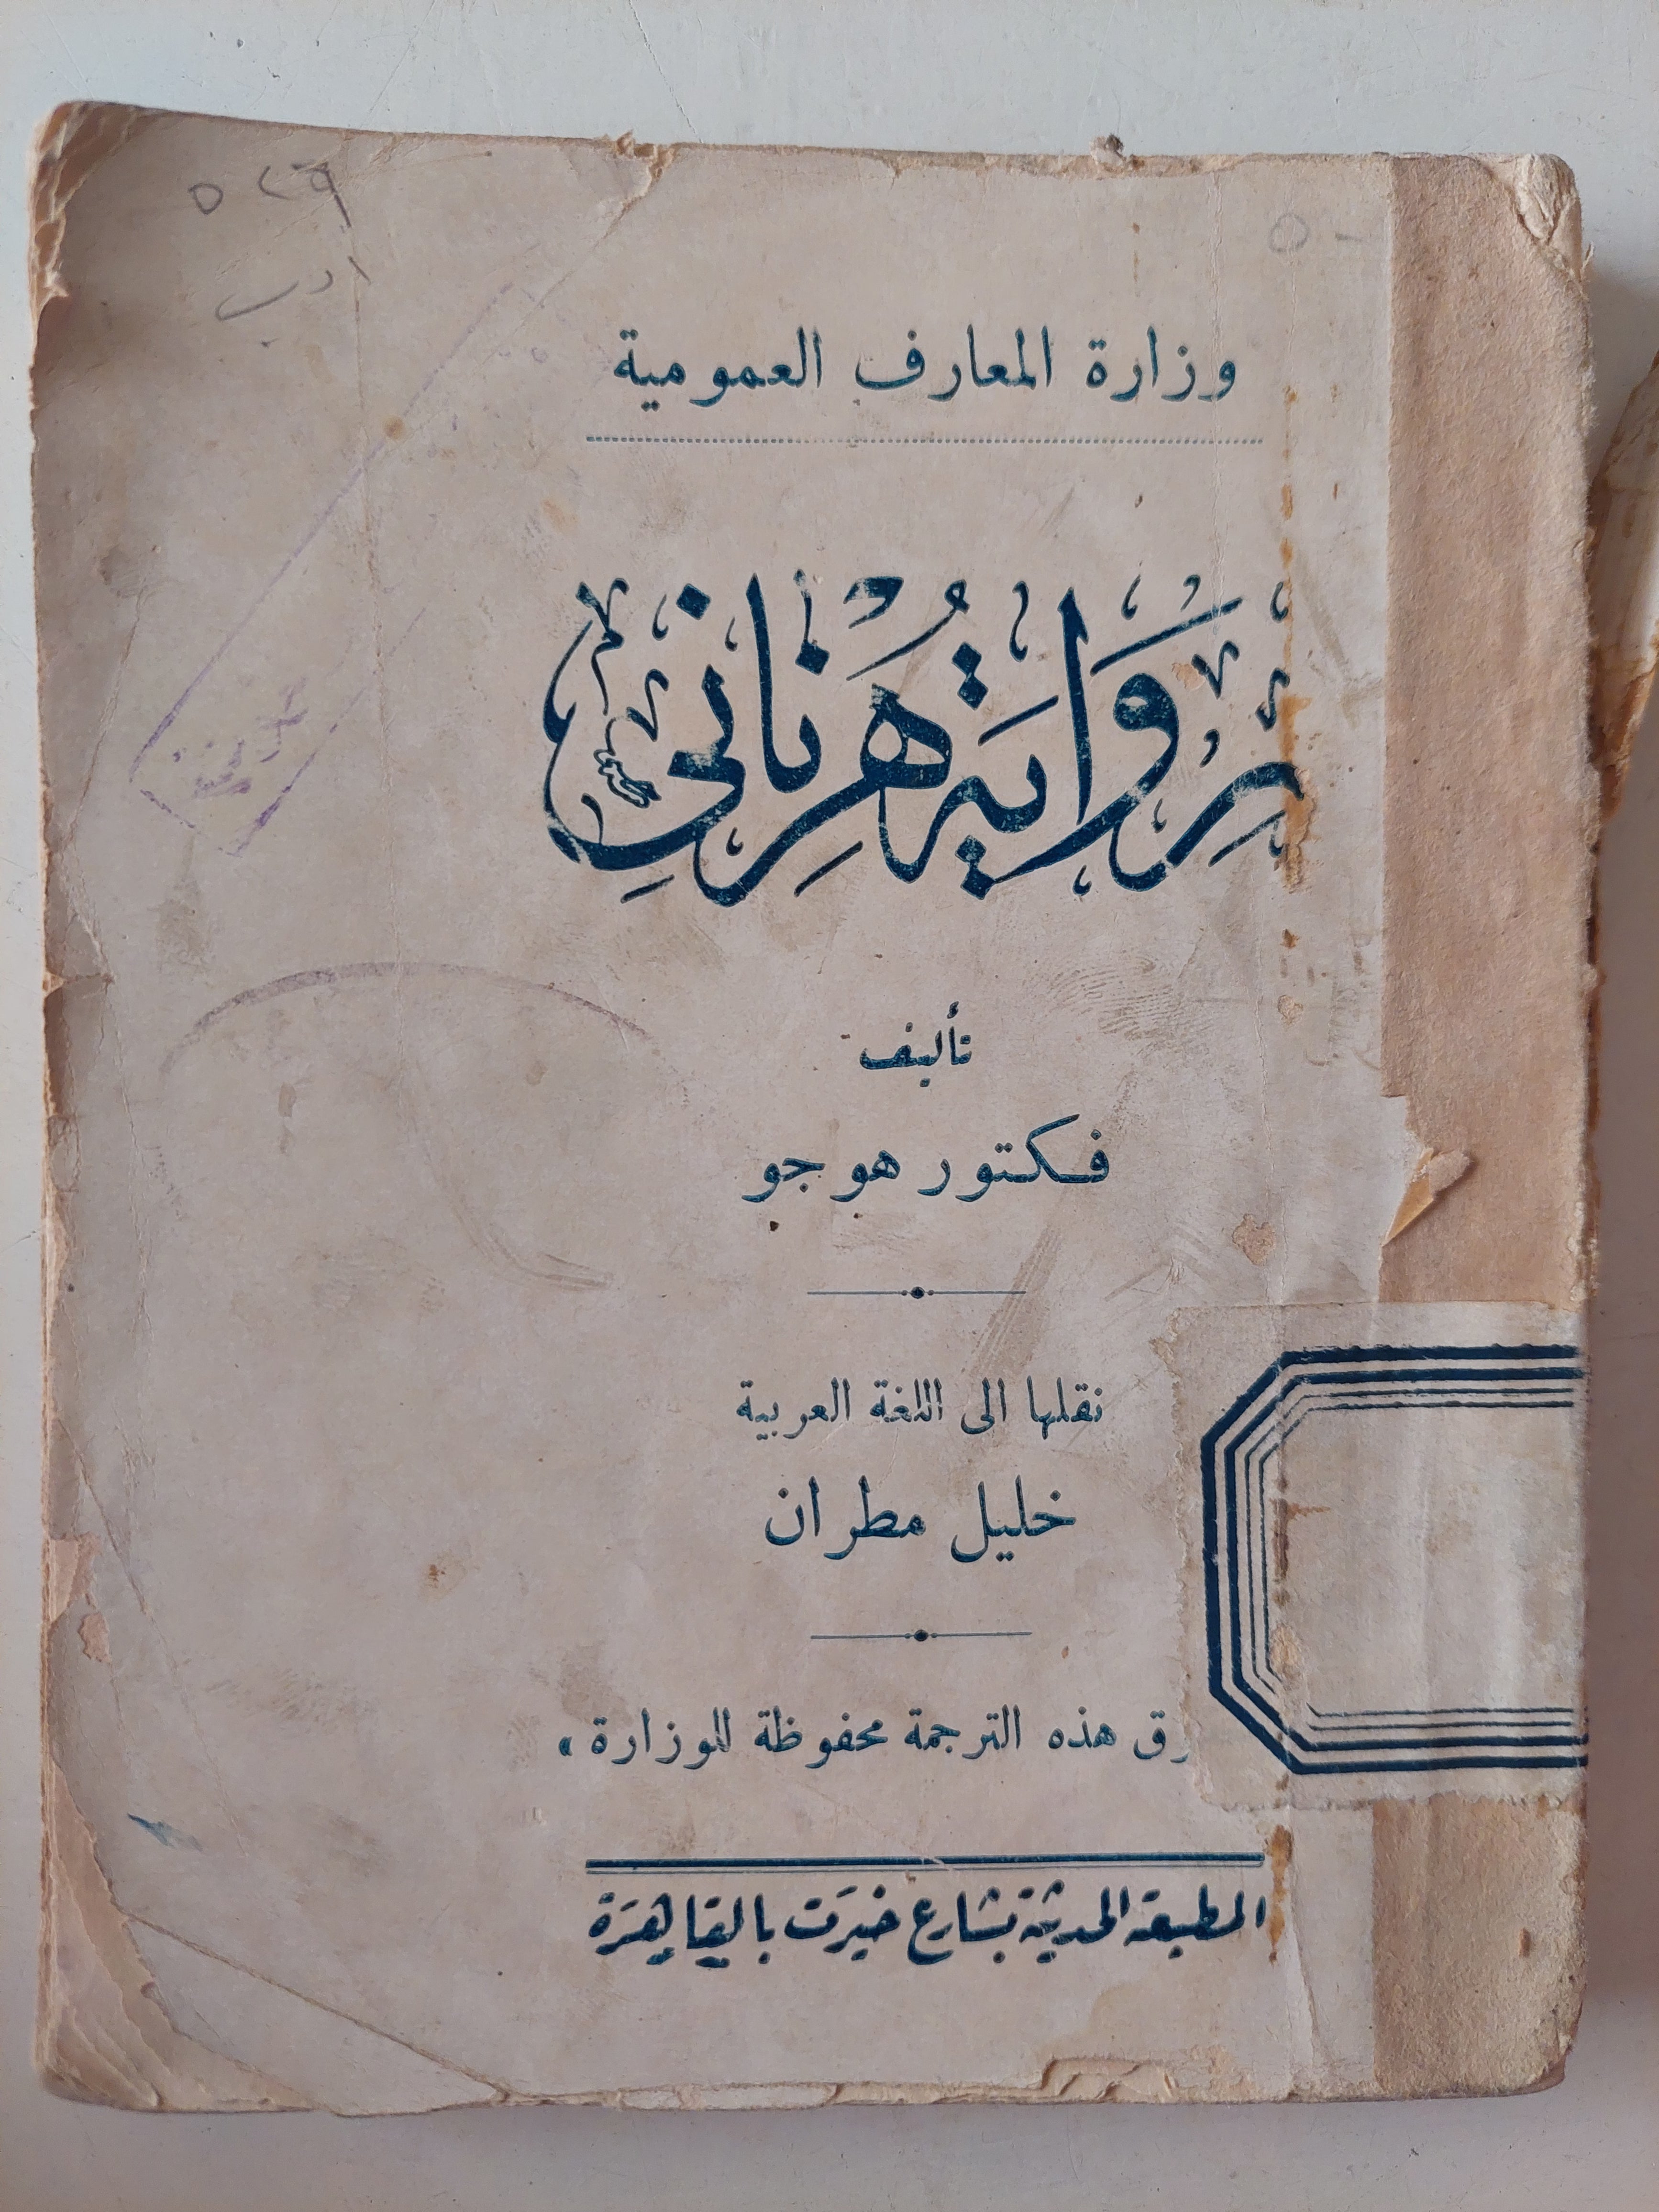 ٥٢٩
ادب
وزارة المعارف العمومية
رِوَايَة هَرنَانِي
تأليف
فكتور هوجو
نقلها الى اللغة العربية
خليل مطران
هذه الترجمة محفوظة للوزارة »
المطبعة الحديثة بشارع خيرت بالقاهرة